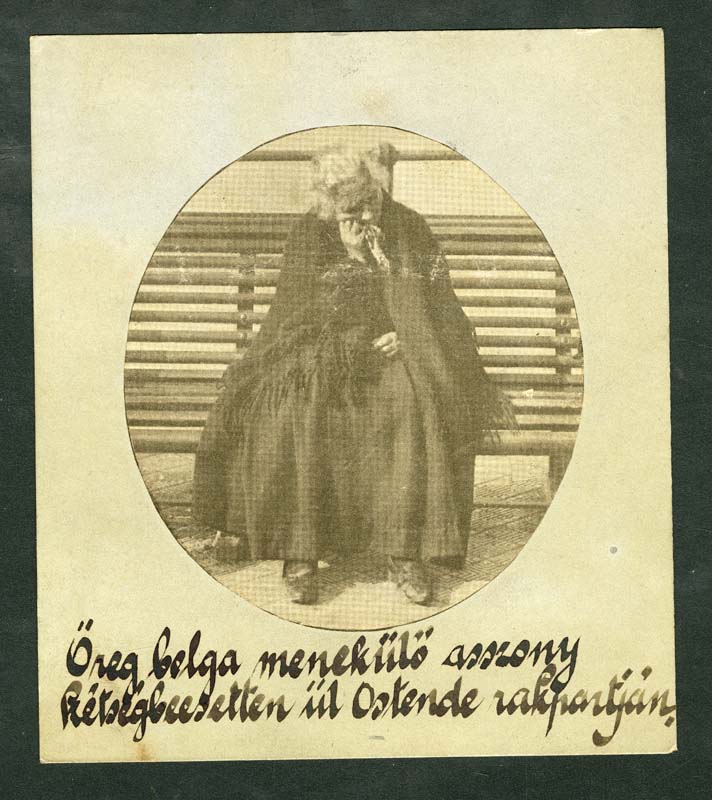 Öreg belga menekülő asszony
kétségbeesetten ül Ostende rakpartján.